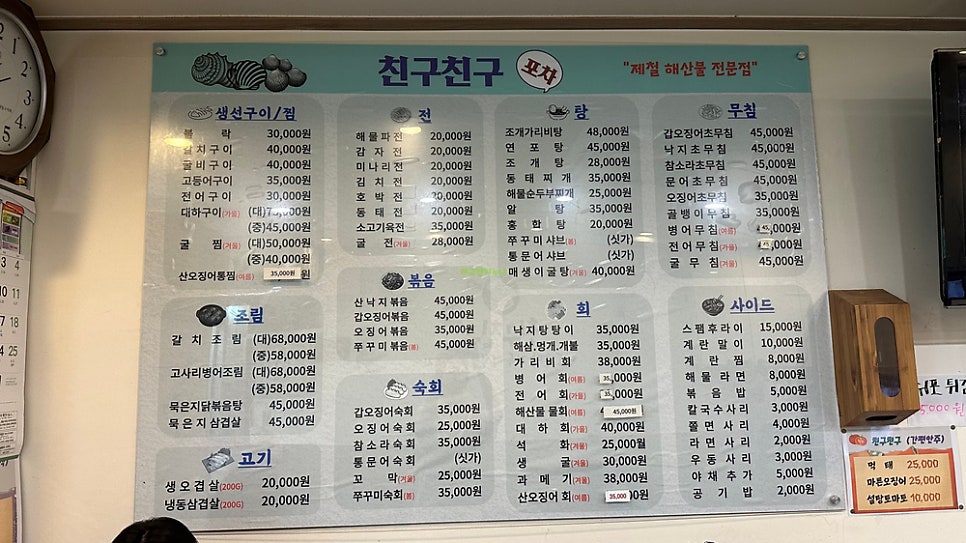 친구친구 포차 "제철 해산물 전문점"
생선구이/찜
볼락 30,000원
갈치구이 40,000원
굴비구이 40,000원
고등어구이 35,000원
전어구이 30,000원
대하구이(가을) (대)75,000원
(중)45,000원
굴찜(겨울) (대)50,000원
(중)40,000원
산오징어통찜(여름) 35,000원
조림
갈치조림 (대)68,000원
(중)58,000원
고사리병어조림 (대)68,000원
(중)58,000원
묵은지닭볶음탕 45,000원
묵은지삼겹살 45,000원
고기
생오겹살(200G) 20,000원
냉동삼겹살(200G) 20,000원
전
해물파전 20,000원
감자전 20,000원
미나리전 20,000원
김치전 20,000원
호박전 20,000원
동태전 20,000원
소고기육전 35,000원
굴전(겨울) 28,000원
볶음
산낙지볶음 45,000원
갑오징어볶음 45,000원
오징어볶음 35,000원
쭈꾸미볶음(봄) 45,000원
숙회
갑오징어숙회 35,000원
오징어숙회 25,000원
참소라숙회 35,000원
통문어숙회 (싯가)
꼬막(겨울) 25,000원
쭈꾸미숙회(봄) 35,000원
탕
조개가리비탕 48,000원
연포탕 45,000원
조개탕 28,000원
동태찌개 35,000원
해물순두부찌개 25,000원
알탕 35,000원
홍합탕 20,000원
쭈꾸미샤브(봄) (싯가)
통문어샤브 (싯가)
매생이굴탕(겨울) 40,000원
회
낙지탕탕이 35,000원
해삼,멍개,개불 35,000원
가리비회 38,000원
병어회(여름) 35,000원
전어회(가을) 35,000원
해산물물회(여름) 45,000원
대하회(가을) 40,000원
석화(겨울) 25,000월
생굴(겨울) 30,000원
과메기(겨울) 38,000원
산오징어회(여름) 35,000원
무침
갑오징어초무침 45,000원
낙지초무침 45,000원
참소라초무침 45,000원
문어초무침 45,000원
오징어초무침 35,000원
골뱅이무침 35,000원
병어무침(여름) 45,000원
전어무침(가을) 45,000원
굴무침(겨울) 45,000원
사이드
스팸후라이 15,000원
계란말이 10,000원
계란찜 8,000원
해물라면 8,000원
볶음밥 5,000원
칼국수사리 3,000원
쫄면사리 4,000원
라면사리 2,000원
우동사리 3,000원
야채추가 5,000원
공기밥 2,000원
5000원
친구친구 (간편안주)
먹태 25,000
마른오징어 25,000
설탕토마토 10,000